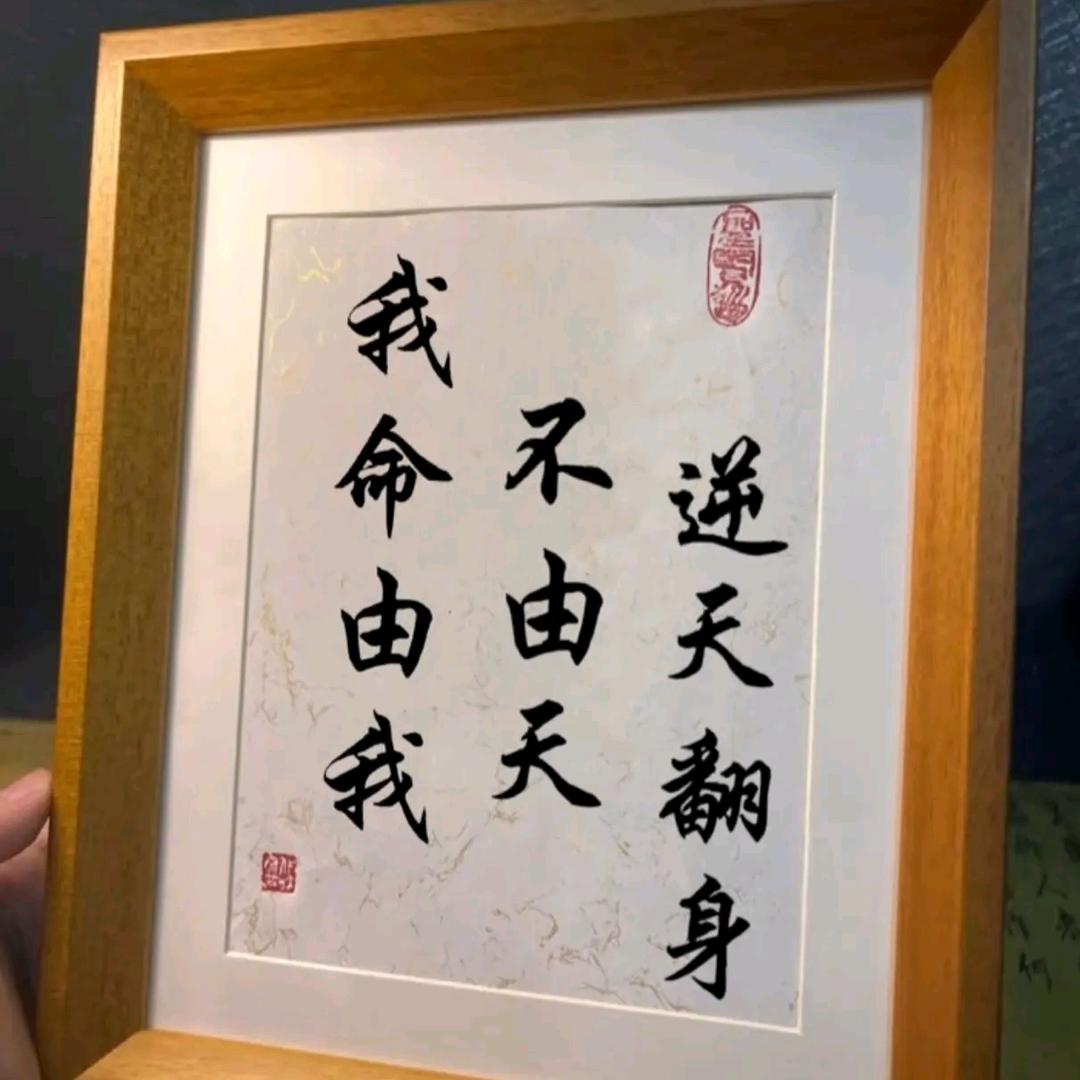 我命由我
不由天
逆天翻身